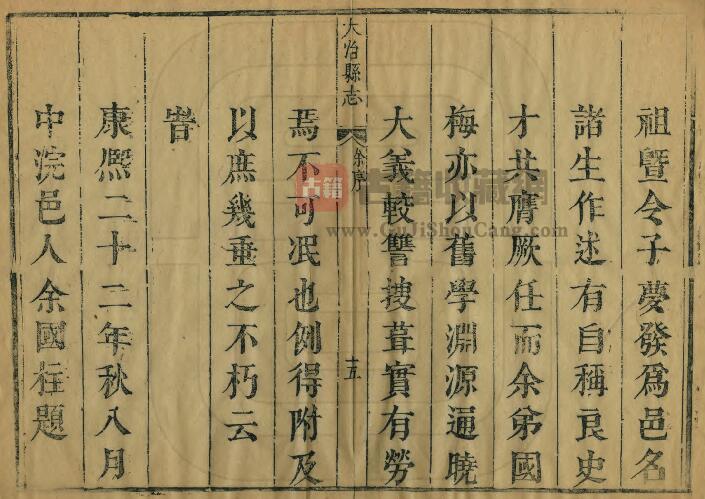 祖暨令子夢發爲邑名
諸生作述有自稱良史
才共膺厥任而余弟國
梅亦以舊學淵源通曉
大義較讐搜葺實有勞
大冶縣志
余序
十五
焉不可泯也例得附及
以庶幾垂之不朽云
旹
康熙二十二年秋八月
中浣邑人余國柱題
古籍
古籍收藏網
www.GuJiShouCang.com